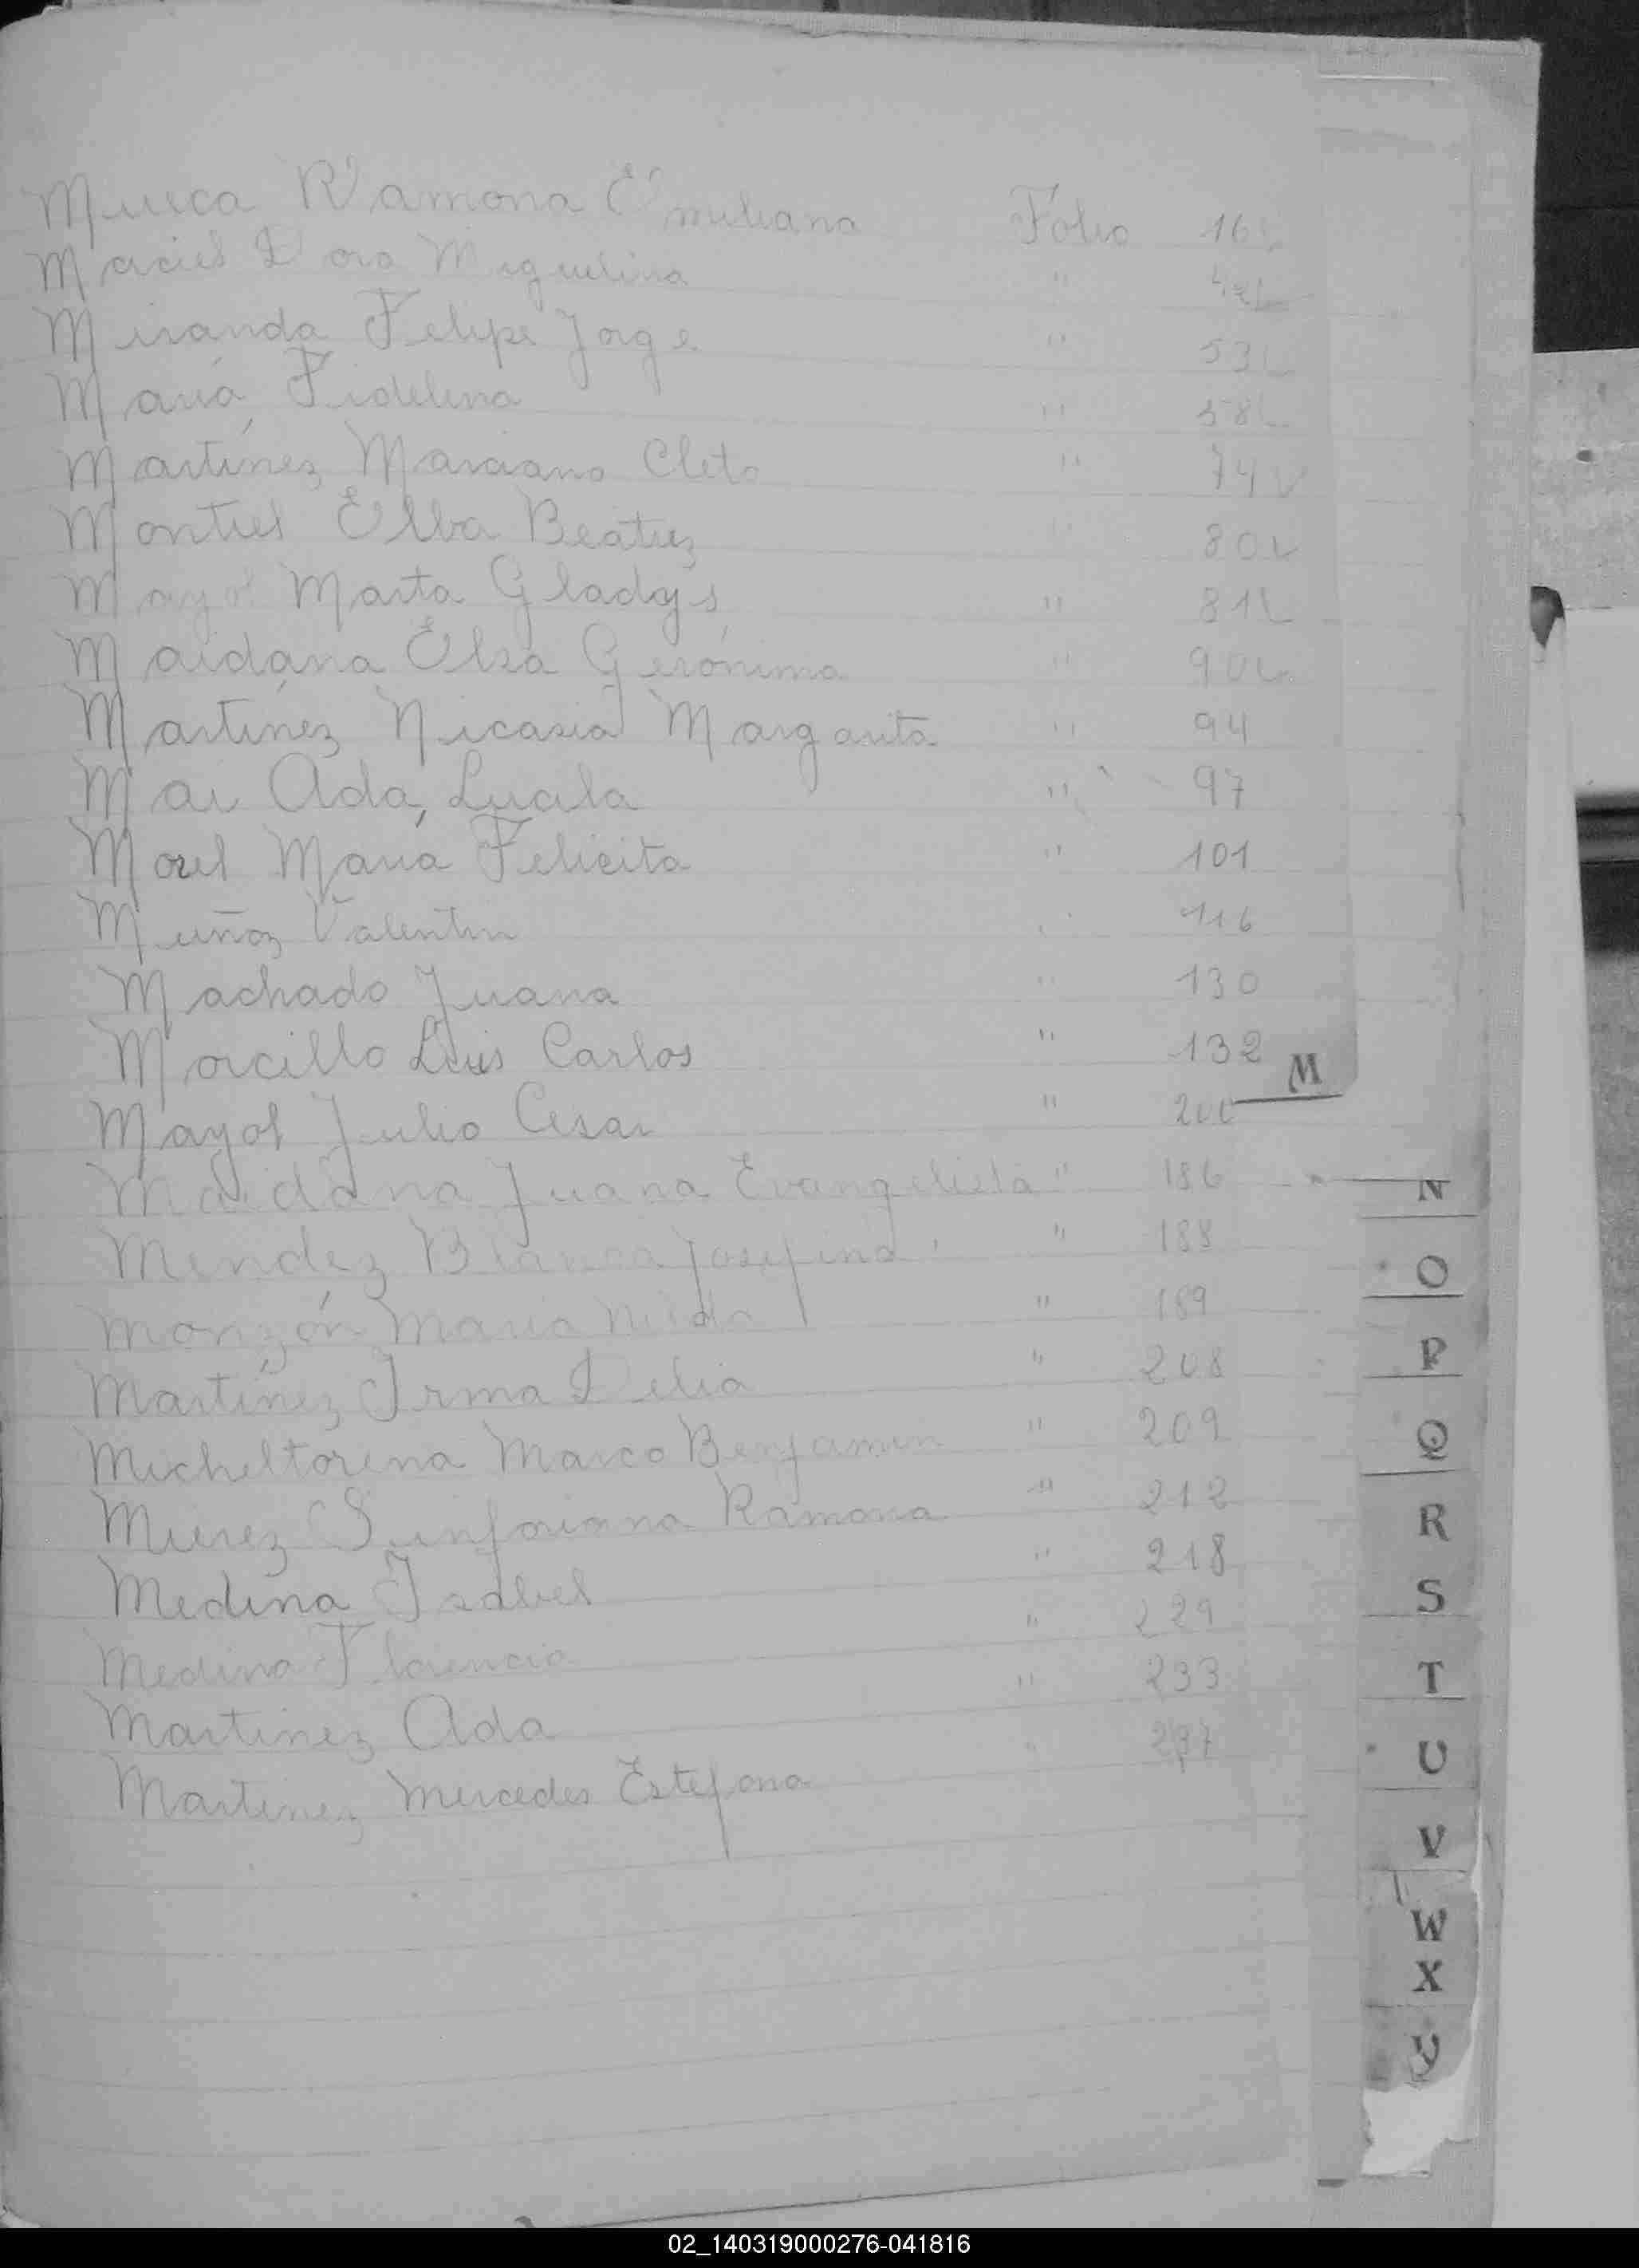 Mujica Ramona Emiliana Folio 16
Maciel Dora Miguelina "
Miranda Felipe Jorge " 53
María Fidelina " 58
Martínez Marciano Cleto " 74
Montiel Elba Beatriz " 80
Mayor Marta Gladys " 81
Maidana Elsa Gerónima " 90
Martínez Nicasia Margarita " 94
Mai Ada Lucila " 97
Morel María Felicita " 101
Muñoz Valentin 116
Machado Juana " 130
Morcillo Luis Carlos " 132
M
Mayol Julio Cesar " 200
Maidana Juana Evangelista " 186
N
Mendez Blanca Josefina " 188
O
Monzón Maria Nilda " 189
P
Martínez Irma Delia " 208
Q
Micheltorena Marco Benjamin " 209
R
Sinforiana Ramona " 212
S
Medina Isabel " 218
T
Medina Florencia " 229
Martinez Ada " 233
U
Martinez Mercedes Estefana 237
V
W
X
Y
02_140319000276-041816